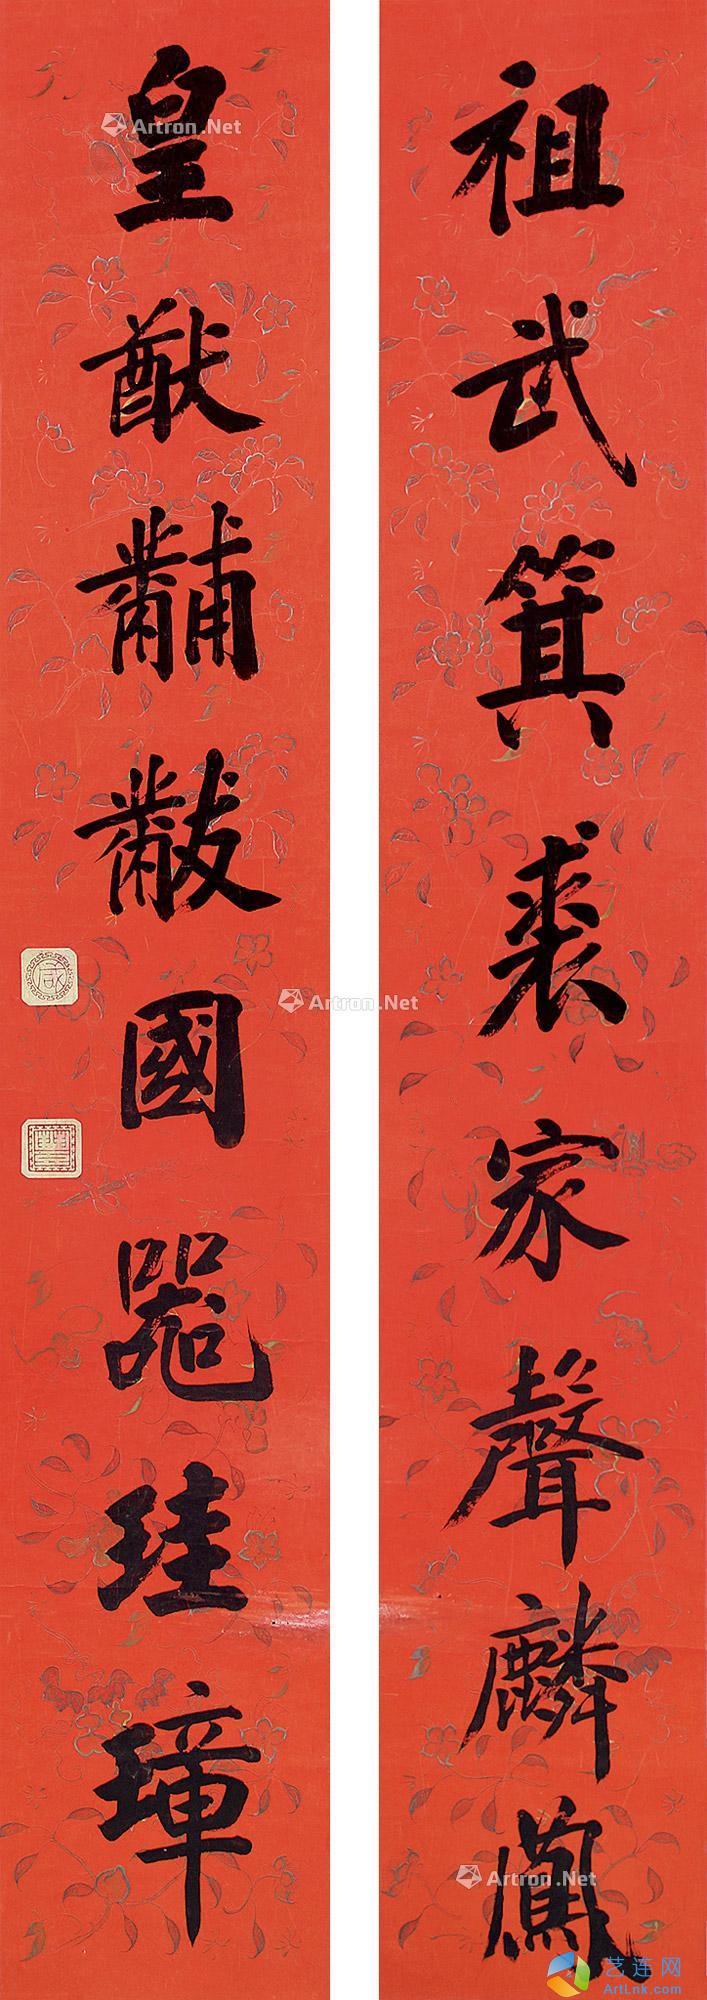 祖武箕裘家聲麟鳳
皇猷黼黻國器珪璋
Artron.Net
Artron.Net
Artron.Net
艺连网
ArtLnk.com